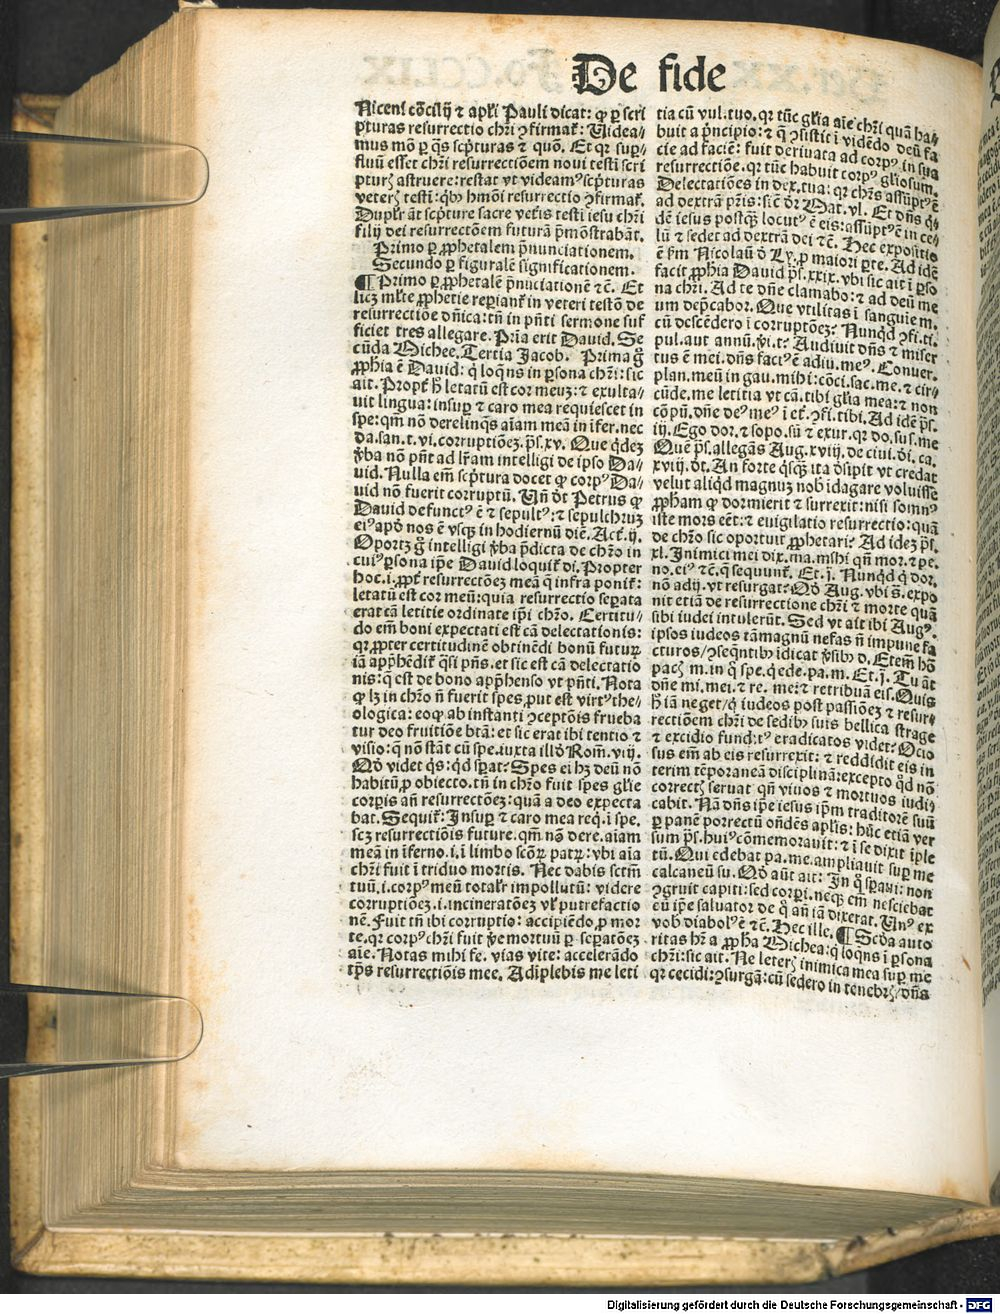 De fide
Niceni cōcilij ⁊ apl̄i Pauli dicat: ꝙ ꝑ scri
pturas resurrectio chr̄i ꝯfirmat̄: Videa/
mus mō ꝑ q̄s scp̄turas ⁊ quō. Et qꝛ suꝑ/
fluū esset chr̄i resurrectiōem noui testi scri
pturꝭ astruere: restat vt videamꝰ scp̄turas
veterꝭ testi: qͥbꝰ hmōi resurrectio ꝯfirmat̄.
Duplr̄ āt scp̄ture sacre vetꝭis testi iesu chr̄i
filij dei resurrectōem futurā p̄mōstrabāt.
Primo ꝑ ꝓphetalem p̄nunciationem.
Secundo ꝑ figuralē significationem.
¶ Primo ꝑ ꝓphetalē p̄nūciationē ⁊c̄. Et
licꝫ ml̄te ꝓphetie reꝑiant̄ in veteri testō de
resurrectiōe dn̄ica: tn̄ in pn̄ti sermone suf
ficiet tres allegare. Pr̄ia erit Dauid. Se
cūda Michee. Tertia Jacob. Prima g̊
ꝓphia ē Dauid: q̇ loqͥns in ꝑsona chr̄i: sic
ait. Propt̄ h̄ letatū est cor meuꝫ: ⁊ exulta/
uit lingua: insuꝑ ⁊ caro mea requiescet in
spe: qm̄ nō derelinq̄s aīam meā in īfer. nec
da. san. t. vi. corruptiōeꝫ. p̄s. xv. Que qͥdeꝫ
v̄ba nō pn̄t ad lr̄am intelligi de ipso Da/
uid. Nulla em̄ scp̄tura docet ꝙ corpꝰ Da/
uid nō fuerit corruptū. Vn̄ dt̄ Petrus ꝙ
Dauid defunctꝰ ē ⁊ sepultꝰ: ⁊ sepulchruꝫ
eiꝰ apd̄ nos ē vsqꝫ in hodiernū diē. Act̄. ij.
Oportꝫ g̊ intelligi v̄ba p̄dicta de chr̄o in
cuiꝰ ꝑsona ip̄e Dauid loquit̄ di. Propter
hoc. i. ꝓpt̄ resurrectōeꝫ meā q̄ infra ponit̄:
letatū est cor meū: quia resurrectio seꝑata
erat cā letitie ordinate ip̄i chr̄o. Certitu/
do em̄ boni expectati est cā delectationis:
qꝛ ꝓpter certitudinē obtinēdi bonū futuꝝ
iā app̄hēdit̄ qͣsi pn̄s. et sic est cā delectatio
nis: q̄ est de bono app̄henso vt pn̄ti. Nota
ꝙ lꝫ in chr̄o n̄ fuerit spes, put est virtꝰ the/
ologica: eoꝙ ab instanti ꝯceptōis frueba
tur deo fruitiōe btā: et sic erat ibi tentio ⁊
visio: q̄ nō stāt cū spe. iuxta illd̄ Rom̄. viij.
Qd̄ videt qͥs: qͥd sꝑat? Spes ei hꝫ deū nō
habitū ꝓ obiecto. tn̄ in chr̄o fuit spes gl̄ie
corpis an̄ resurrectōeꝫ: quā a deo expecta
bat. Sequit̄: Insuꝑ ⁊ caro mea req̇. i spe.
scꝫ resurrectiōis future. qm̄ nō dere. aiam
meā in īferno. i. i limbo scōꝝ patꝝ: vbi aīa
chr̄i fuit ī triduo mortis. Nec dabis sctm̄
tuū, i. corpꝰ meū totalr̄ impollutū: videre
corruptiōeꝫ. i. incineratōeꝫ vl̄ putrefactio
nē. Fuit tn̄ ibi corruptio: accipiēdo ꝓ mor
te. qꝛ corpꝰ chr̄i fuit v̄e mortuū ꝑ seꝑatōeꝫ
aīe. Notas mihi fe. vias vite: accelerādo
tp̄s resurrectiōis mee. Adiplebis me leti
tia cū vul. tuo. qꝛ tūc gl̄ia aīe chr̄i quā ha/
buit a p̄ncipio: ⁊ q̄ ꝯsistit ī vidēdo deū fa
cie ad faciē: fuit deriuata ad corpꝰ in sua
resurrectiōe. qꝛ tūc habuit corpꝰ gl̄iosum.
Delectatiōes in dex. tua: qꝛ chr̄s assūptꝰ ē
ad dextrā pr̄is: sic dr̄ Mar. vl. Et dn̄s qͥ/
dē iesus postqͣꝫ locutꝰ ē eis: assūptꝰ ē in ce/
lū ⁊ sedet ad dextrā dei ⁊c̄. Hec expositio
ē ẜm Nicolaū d̄ Ly. ꝓ maiori ꝑte. Ad idē
facit ꝓphia Dauid p̄s. xxix. vbi sic ait i ꝑso
na chr̄i. Ad te dn̄e clamabo: ⁊ ad deū me
um dep̄cabor. Que vtilitas ī sanguie m.
cū descēdero ī corruptōeꝫ? Nunqͥd ꝯfi. ti.
pul. aut annū. v̄i. t? Audiuit dn̄s ⁊ miser
tus ē mei. dn̄s factꝰ ē adiu. meꝰ. Conuer.
plan. meū in gau. mihi: cōci. sac. me. ⁊ cir/
cūde. me letitia vt cā. tibi gl̄ia mea: ⁊ non
cōpū. dn̄e deꝰ meꝰ ī et̄. ꝯfi. tibi. Ad idē p̄s.
iij. Ego dor. ⁊ sopo. sū ⁊ exur. qꝛ do. sus. me
Que p̄s. allegās Aug. xviij. de ciui. d̄i. ca.
xviij. dt̄. An forte qͥsqͣꝫ ita d̄sipit vt credat
velut aliqͥd magnuꝫ nob idagare voluisse
ꝓpham ꝙ dormierit ⁊ surrexit: nisi somnꝰ
iste mors eēt: ⁊ euigilatio resurrectio: quā
de chr̄o sic oportuit ꝓphetari? Ad ideꝫ p̄s.
xl. Inimici mei dix. ma. mihi qn̄ mor. ⁊ pe.
no. eiꝰ ⁊c̄. q̄ sequunt̄. Et. j. Nunqͥd q̇ dor.
nō adij. vt resurgat? Qd̄ Aug. vbi s̄. expo
nit etiā de resurrectione chr̄i ⁊ morte quā
sibi iudei intulerūt. Sed vt ait ibi Augꝰ.
ipsos iudeos tāmagnū nefas n̄ impune fa
cturos/ ꝯseqn̄tibꝰ īdicat v̄sibꝰ d. Etem̄ hō
pacꝭ m. in q̇ spe. q̇ ede. pa. m. Et. j. Tu āt
dn̄e mi. mei. ⁊ re. me: ⁊ retribuā eis. Quis
h̄ iā neget/ q̇ iudeos post passiōeꝫ ⁊ resur/
rectiōem chr̄i de sedibꝰ suis bellica strage
⁊ excidio fundꝭitꝰ eradicatos videt? Ocio
sus em̄ ab eis resurrexit: ⁊ reddidit eis in
terim tēporaneā disciplinā: excepto qd̄ nō
correctꝭ seruat qn̄ viuos ⁊ mortuos iudi/
cabit. Nā dn̄s ip̄e iesus ip̄m traditorē suū
ꝑ panē porrectū ondēs apl̄is: hūc etiā ver
sum p̄s. huiꝰ cōmemorauit: ⁊ ī se dixit īple
tū. Qui edebat pa. me. ampliauit suꝑ me
calcaneū su. Qd̄ aūt ait: In q̇ sꝑaui: non
ꝯgruit capiti: sed corꝑi. neqꝫ em̄ nesciebat
eū ip̄e saluator de q̇ an̄ iā dixerat. Vnꝰ ex
vob diabolꝰ ē ⁊c̄. Hec ille. ¶ Scd̄a auto
ritas hr̄ a ꝓpha Michea: q̇ loqͥns ī ꝑsona
chr̄i: sic ait. Ne leterꝭ inimica mea suꝑ me
qꝛ cecidi: ꝯsurgā: cū sedero in tenebrꝭ/ dn̄s
Digitalisierung gefördert durch die Deutsche Forschungsgemeinschaft - DFG